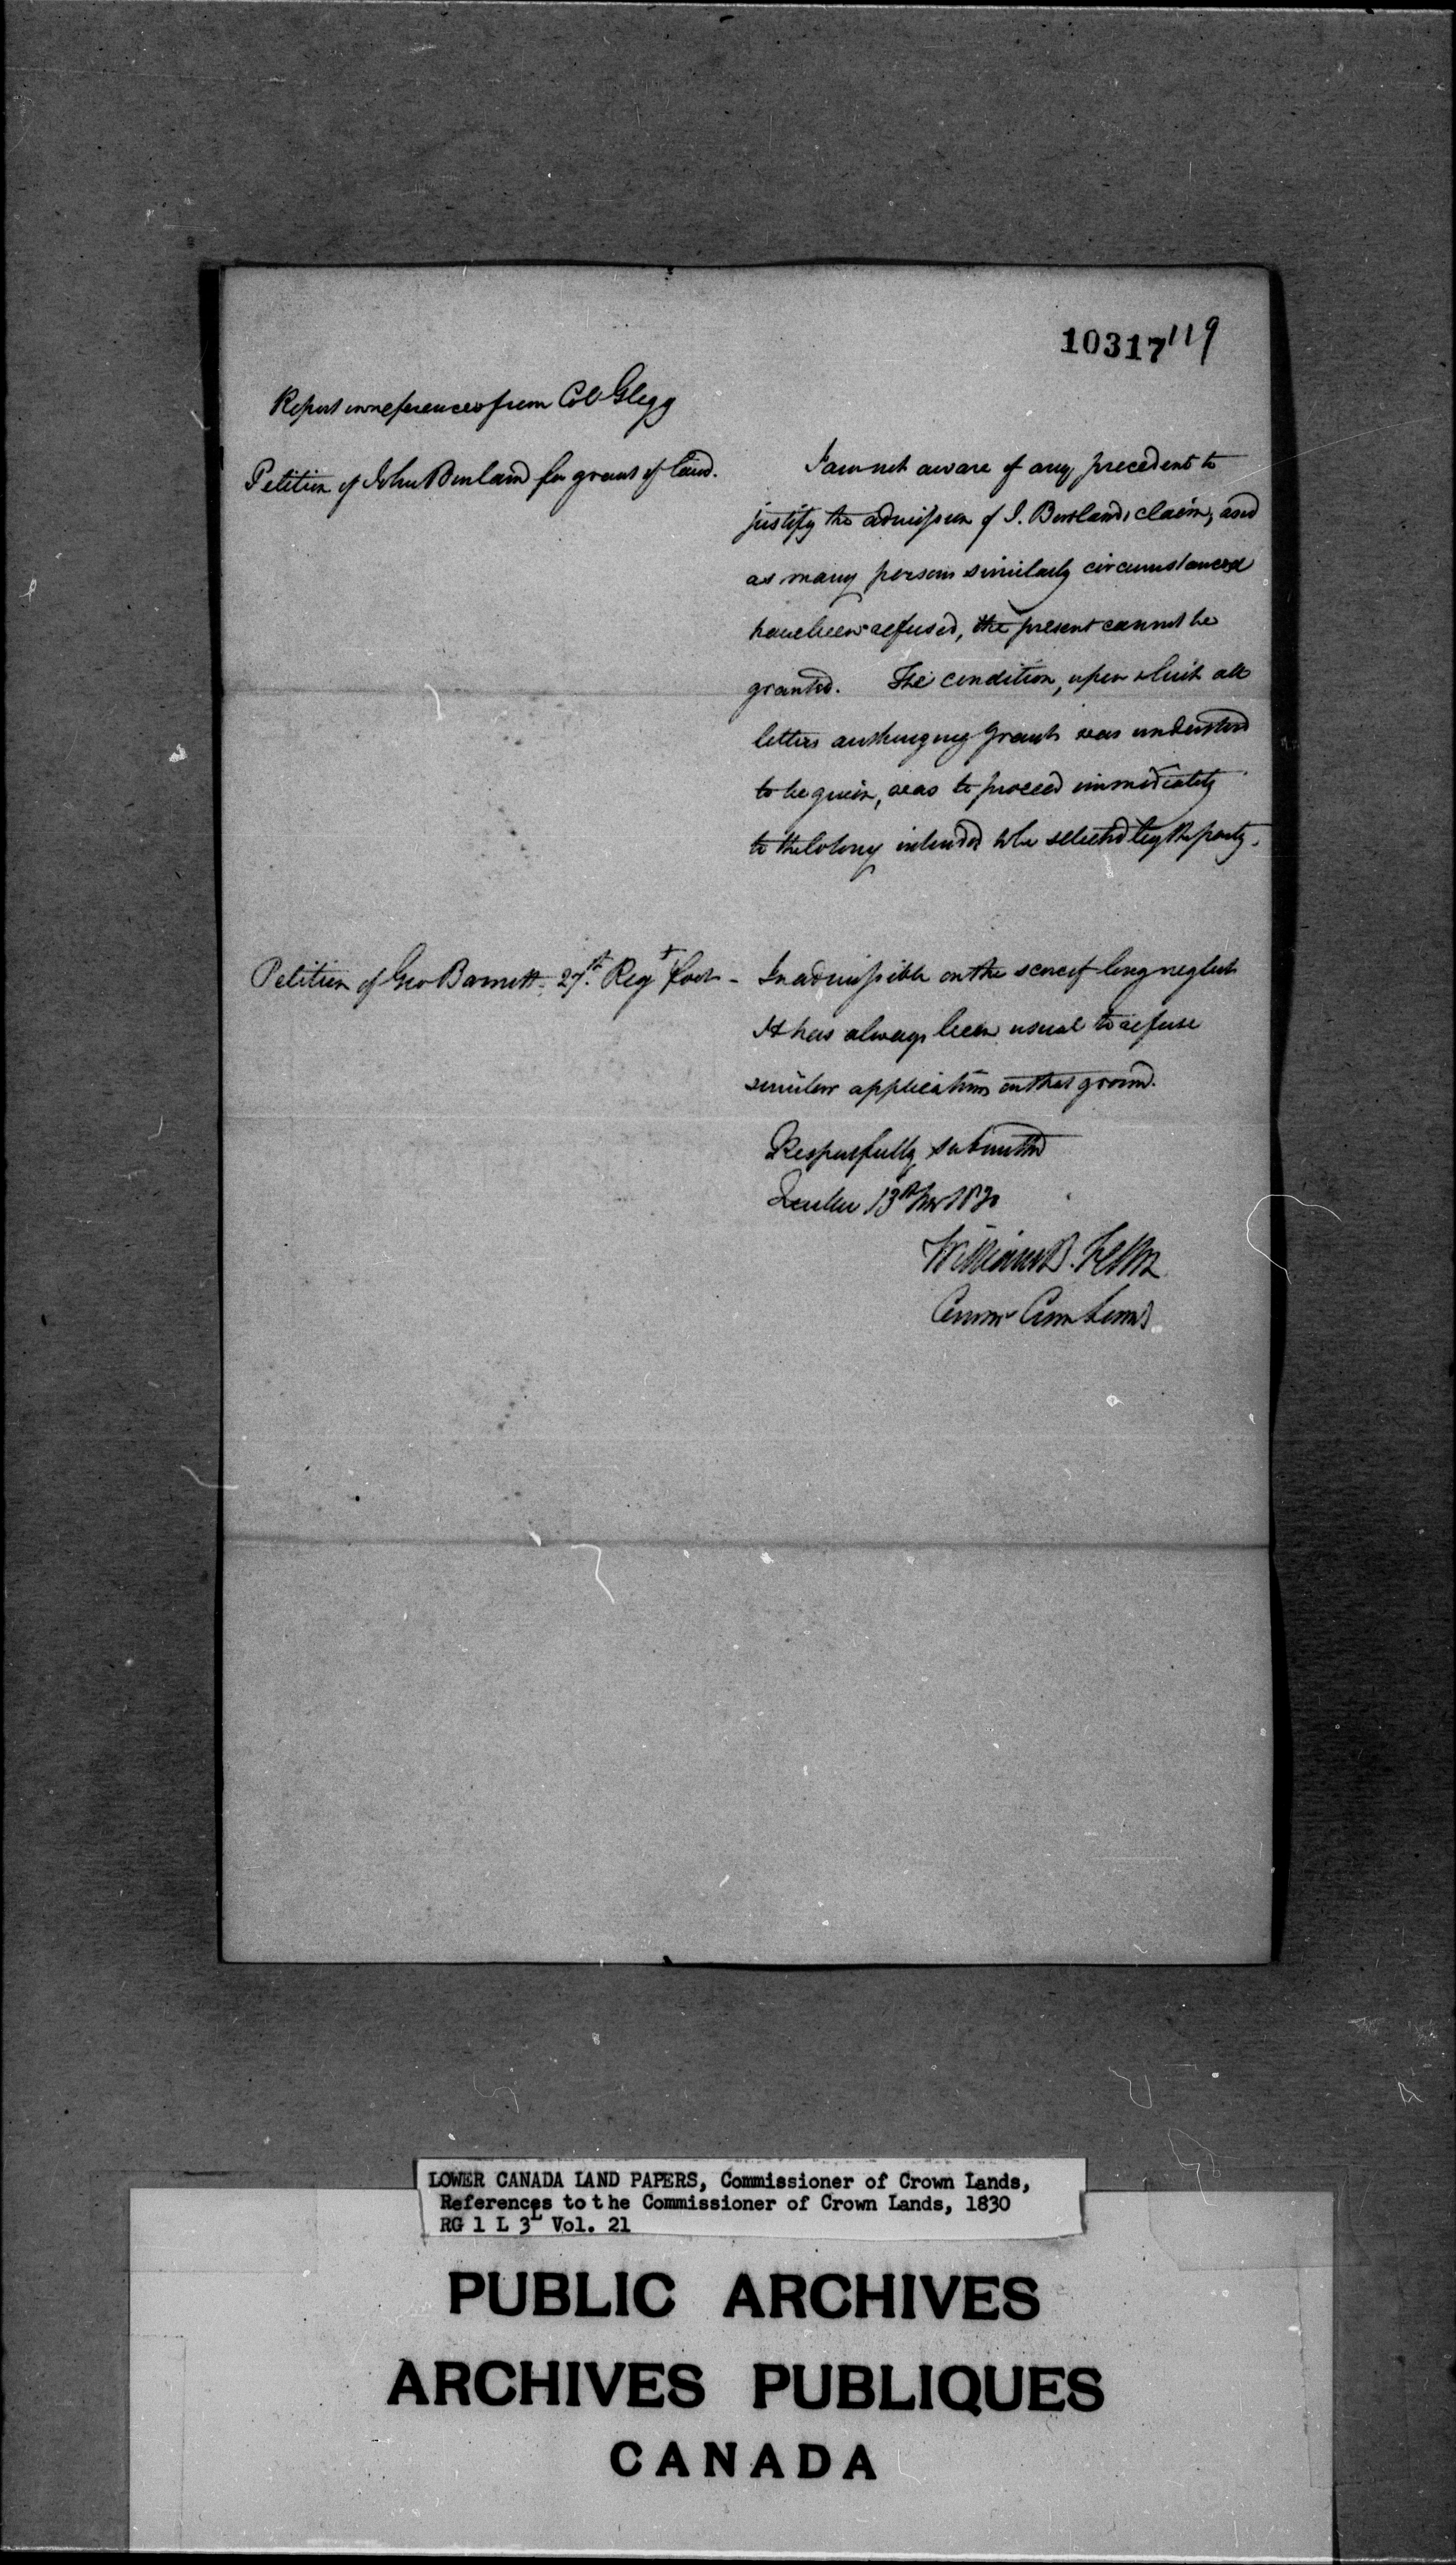 10317 119
Report on references from Col Glegg
Petition of John Burland for grant of land.
I am not aware of any precedent to
justify the admission of J. Burland's claim, and
as many persons similarly circumstanced
have been refused, the present cannot be
granted. The condition, upon which all
letters authorizing Grants was understood
to be given, was to proceed immediately
to the Colony intended to be selected by the party.
Petition of Geo Barnett 27th Regt foot -
Inadmissible on the score of long neglect
It has always been usual to refuse
similar applications on that ground.
Respectfully submitted
Quebec 13th 1830
William B. Felton
Commr Crn Lands
LOWER CANADA LAND PAPERS, Commissioner of Crown Lands,
References to the Commissioner of Crown Lands, 1830
RG 1 L 3L Vol. 21
PUBLIC ARCHIVES
ARCHIVES PUBLIQUES
CANADA